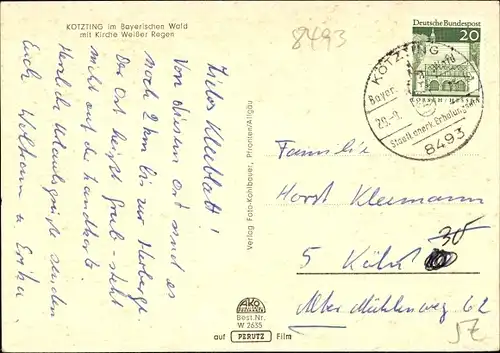 KÖTZTING im Bayerischen Wald
mit Kirche Weißer Regen
8493
Deutsche Bundespost
20
LORSCH/HESSEN
KÖTZTING
Bayer.
Staatl. anerk. Erholungsort
8493
Liebes Kleeblatt!
Von diesem Ort sind es
noch 2 km bis zur Herberge
Der Ort heißt Grub - steht
nicht auf der Landkarte.
Herzliche Urlaubsgrüße senden
Euch Wolfram u. Erika
Verlag Foto-Kohlbauer, Pfronten/Allgäu
Familie
Horst Kleemann
5 Köln 30
Alter Mühlenweg 62
AKO
Best.Nr.
W 2635
auf PERUTZ Film